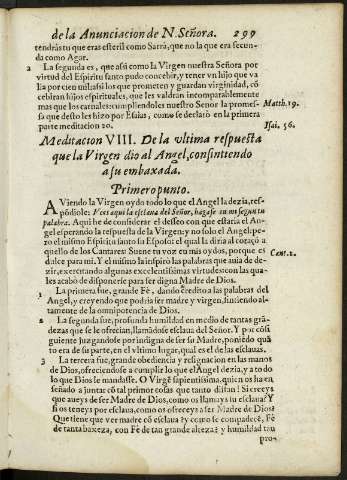 de la Anunciacion de N. Señora. 299
tendràs tu que eras esteril como Sarra, que no la que era fecun-
da como Agar.
2 La segunda es, que assi como la Virgen nuestra Señora por
virtud del Espiritu santo pudo concebir, y tener vn hijo que va
lia por cien mil: assi los que prometen y guardan virginidad, cō
cebiran hijos espirituales, que les valdran incomparablemente
mas que los carnales: cumpliendoles nuestro Señor la promes- Matth. 19.
sa que desto les hizo por Esaias, como se declarò en la primera
parte meditacion 20. Isai. 56.
Meditacion VIII. De la vltima respuesta
que la Virgen dio al Angel, consintiendo
a su embaxada.
Primero punto.
AViendo la Virgen oydo todo lo que el Angel la dezia, res-
põdiole: Veis aqui la esclaua del Señor, hagase en mi segun tu
palabra. Aqui he de considerar el desseo con que estaria el An-
gel esperando la respuesta de la Virgen: y no solo el Angel: pe-
ro el mismo Espiritu santo su Esposo: el qual la diria al coraçõ a-
quello de los Cantares: Suene tu voz en mis oydos, porque es Cant. 2.
dulce para mi. Y el mismo la inspirò las palabras que auia de de-
zir, exercitando algunas excelentissimas virtudes: con las qua-
les acabò de disponerse para ser digna Madre de Dios.
1 La primera fue, grande Fè, dando credito a las palabras del
Angel, y creyendo que podria ser madre y virgen, sintiendo al-
tamente de la omnipotencia de Dios.
2 La segunda fue, profunda humildad en medio de tantas grã-
dezas que se le ofrecian, llamãdose esclaua del Señor. Y por cõsi
guiente juzgandose por indigna de ser su Madre, poniēdo quã
to era de su parte, en el vltimo lugar, qual es el de las esclauas.
3 La tercera fue, grande obediencia y resignacion en las manos
de Dios, ofreciendose a cumplir lo que el Angel dezia, y a todo
lo que Dios le mandasse. O Virgē sapientissima, quien os ha en
señado a juntar cõ tal primor cosas que tanto distan? Si creeys
que aueys de ser Madre de Dios, como os llamays su esclaua? Y
si os teneys por esclaua, como os ofreceys a ser Madre de Dios?
Que tiene que ver madre cõ esclaua? y como se compadecē, Fè
de tanta baxeza, con Fè de tan grande alteza? y humildad tan
pro-